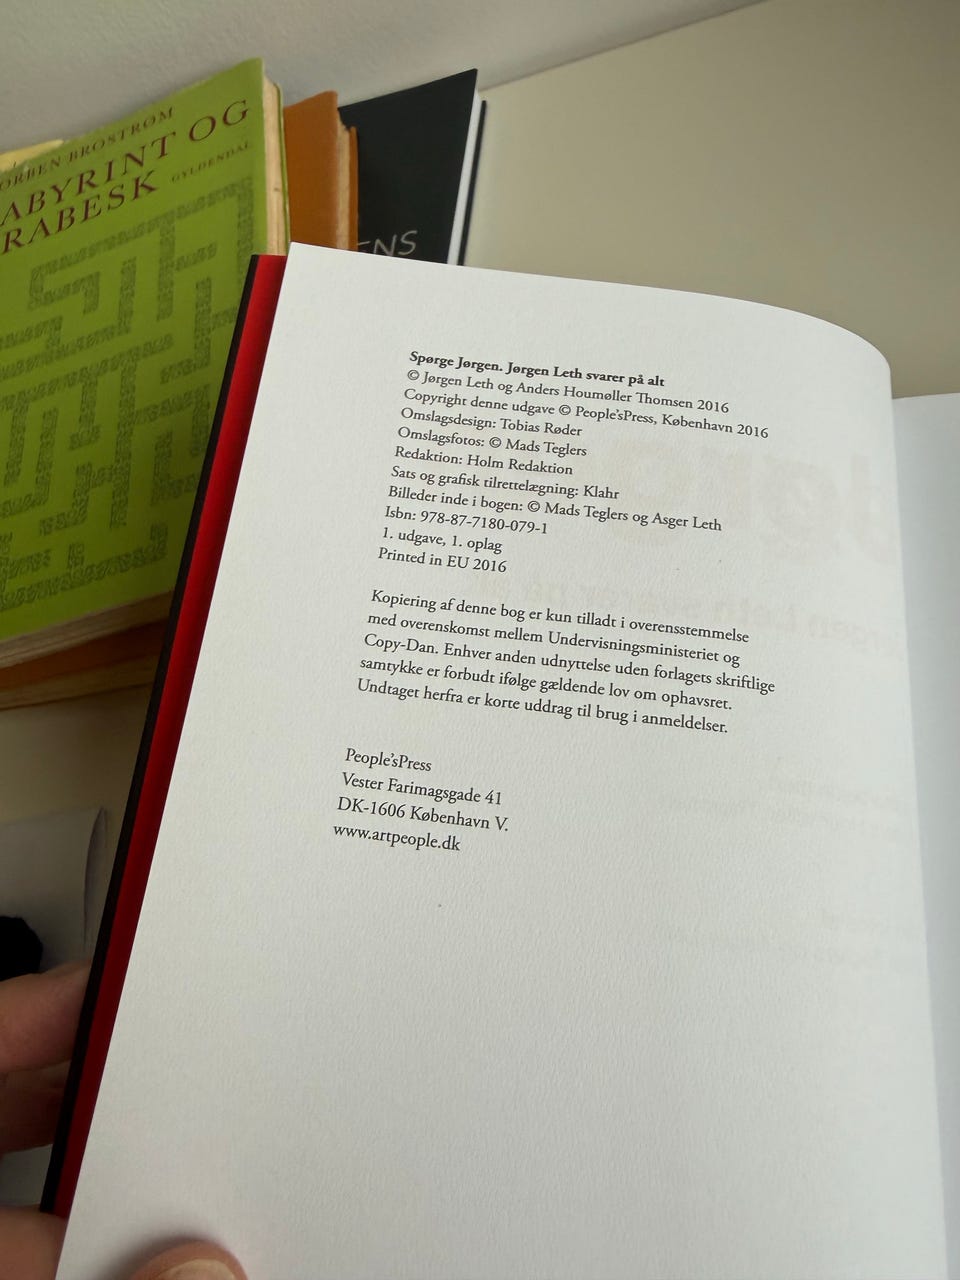 ORBEN BROSTRØM
ABYRINT OG
RABESK
GYLDENDAL
ENS
Spørge Jørgen. Jørgen Leth svarer på alt
© Jørgen Leth og Anders Houmøller Thomsen 2016
Copyright denne udgave © People'sPress, København 2016
Omslagsdesign: Tobias Røder
Omslagsfotos: © Mads Teglers
Redaktion: Holm Redaktion
Sats og grafisk tilrettelægning: Klahr
Billeder inde i bogen: © Mads Teglers og Asger Leth
Isbn: 978-87-7180-079-1
1. udgave, 1. oplag
Printed in EU 2016
Kopiering af denne bog er kun tilladt i overensstemmelse
med overenskomst mellem Undervisningsministeriet og
Copy-Dan. Enhver anden udnyttelse uden forlagets skriftlige
samtykke er forbudt ifølge gældende lov om ophavsret.
Undtaget herfra er korte uddrag til brug i anmeldelser.
People'sPress
Vester Farimagsgade 41
DK-1606 København V.
www.artpeople.dk